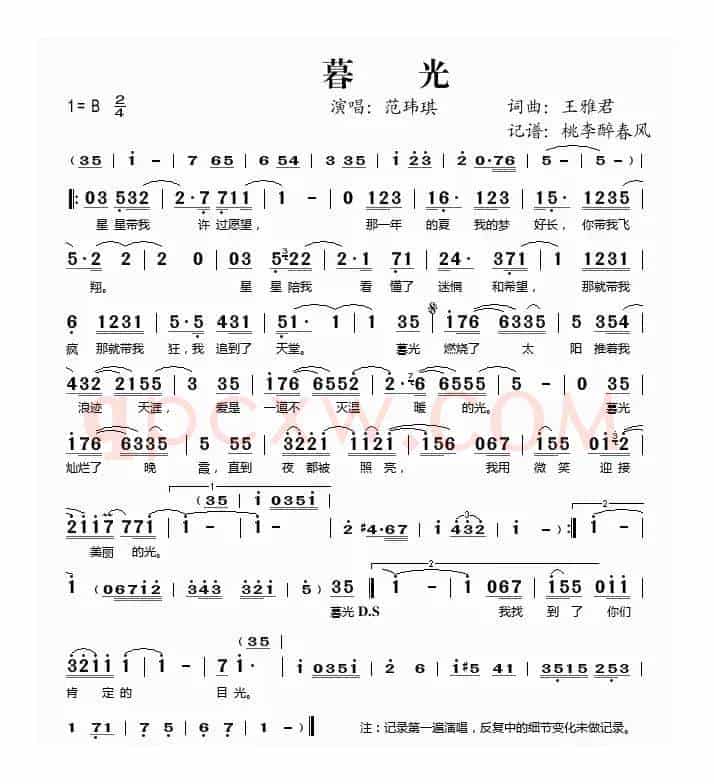 暮 光
1=B 2/4 演唱：范玮琪 词曲：王雅君
记谱：桃李醉春风
(35 | i - | 7 65 | 6 54 | 3 35 | i 23 | 2 0·76 | 5 - | 5 - )
‖: 03 532 | 2·7 711 | 1 - | 0 123 | 16· 123 | 15· 1235
星 星带我 许 过愿望， 那一年 的夏 我的梦 好长，你带我飞
5·2 2 | 2 0 | 03 522 | 2·1 71 | 24· 371 | 1 1231
翔。 星 星 陪我 看 懂了 迷惘 和希望， 那就带我
6 1231 | 5·5 431 | 51· 1 | 1 35 | i76 6335 | 5 354
疯 那就带我 狂，我 追到了 天堂。 暮光 燃烧了 太 阳 推着我
432 2155 | 3 35 | i76 6552 | 2·6 6555 | 5 - | 0 35
浪迹 天涯， 爱是 一道不 灭温 暖 的光。 暮光
qpcxw.COM
i76 6335 | 5 55 | 322i ii2i | i56 067 | i55 0i32
灿烂了 晚 霞，直到 夜 都被 照 亮， 我用 微 笑 迎接
1 (35 | i 035i
2ii7 77i | i - | i - | 2 #4·67 | i 432 | i - ) :‖ i -
3 2
美丽 的光。
i (067i2 | 343 32i | i 5) 35 ‖ i - | i 067 | i55 0ii
2
暮光 D.S 我找 到 了 你们
(35
32ii i | i - | 7 i· | i 035i | 2 6 | i#5 41 | 3515 5255
肯 定的 目光。
1 71 | 7 5 | 6 7 | 1 - ) ‖ 注：记录第一遍演唱，反复中的细节变化未做记录。